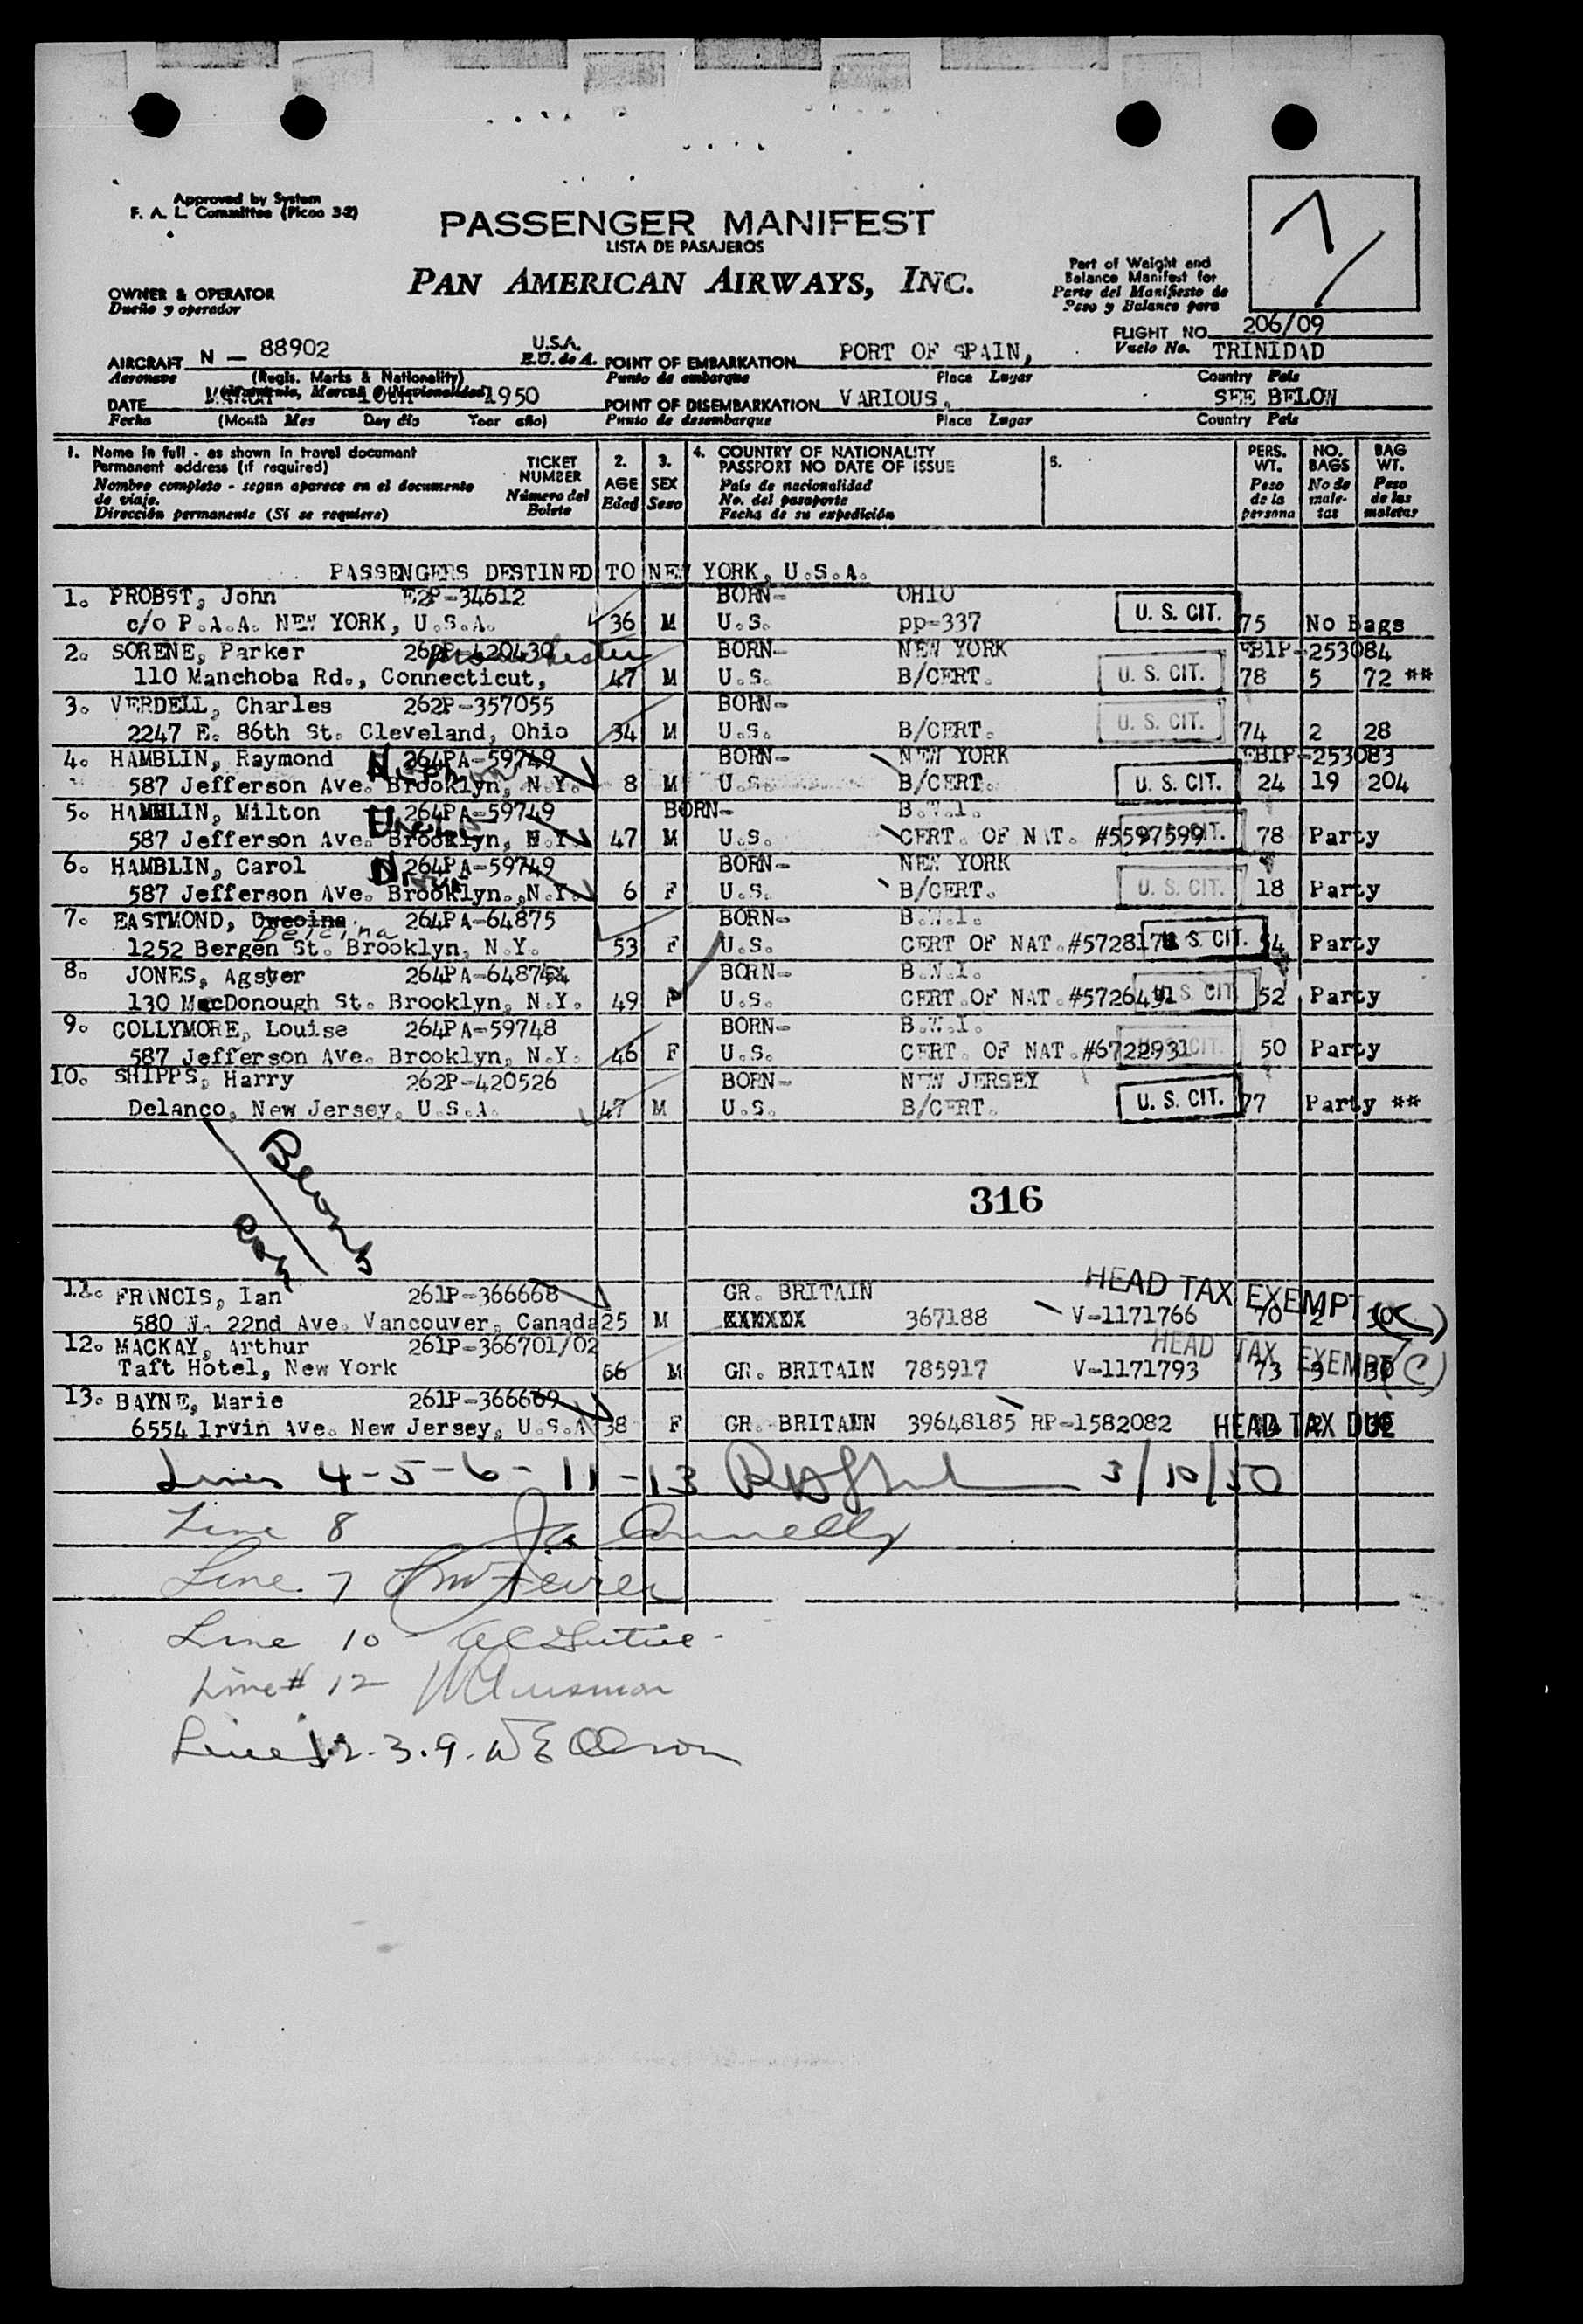 Approved by System
F. A. L. Committee (Picao 3-2)
PASSENGER MANIFEST
LISTA DE PASAJEROS
PAN AMERICAN AIRWAYS, INC.
OWNER & OPERATOR
Dueño y operador
Part of Weight and
Balance Manifest for
Parte del Manifiesto de
Peso y Balance para
FLIGHT NO. 206/09
Vuelo No.
AIRCRAFT N - 88902 U.S.A. POINT OF EMBARKATION PORT OF SPAIN, TRINIDAD
Aeronave (Regis. Marks & Nationality) E.U. de A. Punto de embarque Place Lugar Country Pais
DATE 10th 1950 POINT OF DISEMBARKATION VARIOUS. SEE BELOW
Fecha (Month Mes Day día Year año) Punto de desembarque Place Lugar Country Pais
1. Name in full - as shown in travel document
Permanent address (if required)
Nombre completo - segun aparece en el documento
de viaje.
Dirección permanente (Si se requiera)
TICKET
NUMBER
Número del
Bolete
2.
AGE
Edad
3.
SEX
Sexo
4. COUNTRY OF NATIONALITY
PASSPORT NO DATE OF ISSUE
Pais de nacionalidad
No. del pasaporte
Fecha de su expedición
5.
PERS.
WT.
Peso
de la
persona
NO.
BAGS
No de
male-
tas
BAG
WT.
Peso
de las
maletas
PASSENGERS DESTINED TO NEW YORK, U.S.A.
1. PROBST, John E2P-34612 BORN- OHIO
c/o P.A.A. NEW YORK, U.S.A. 36 M U.S. pp-337 U. S. CIT. 75 No Bags
2. SORENE, Parker 262P-420430 BORN- NEW YORK EB1P-253084
110 Manchoba Rd., Connecticut, 47 M U.S. B/CERT. U. S. CIT. 78 5 72 **
3. VERDELL, Charles 262P-357055 BORN-
2247 E. 86th St. Cleveland, Ohio 34 M U.S. B/CERT. U. S. CIT. 74 2 28
4. HAMBLIN, Raymond 264PA-59749 BORN- NEW YORK EB1P-253083
587 Jefferson Ave. Brooklyn, N.Y. 8 M U.S. B/CERT. U. S. CIT. 24 19 204
5. HAMBLIN, Milton 264PA-59749 BORN- B.W.I.
587 Jefferson Ave. Brooklyn, N.Y. 47 M U.S. CERT. OF NAT. #5597599 78 Party
6. HAMBLIN, Carol 264PA-59749 BORN- NEW YORK
587 Jefferson Ave. Brooklyn., N.Y. 6 F U.S. B/CERT. U. S. CIT. 18 Party
7. EASTMOND, 264PA-64875 BORN- B.W.I.
1252 Bergen St. Brooklyn, N.Y. 53 F U.S. CERT OF NAT. U. S. CIT. 54 Party
8. JONES, Agsyer BORN- B.W.I.
130 MacDonough St. Brooklyn, N.Y. 49 F U.S. CERT.OF NAT.#5726491 U. S. CIT 52 Party
9. COLLYMORE, Louise 264PA-59748 BORN- B.W.I.
587 Jefferson Ave. Brooklyn, N.Y. 46 F U.S. CERT. OF NAT.#6722931 50 Party
10. SHIPPS, Harry 262P-420526 BORN- NEW JERSEY
Delanco, New Jersey, U.S.A. 47 M U.S. B/CERT. U. S. CIT. 77 Party **
316
FRANCIS, Ian 261P-366668 GR. BRITAIN HEAD TAX EXEMPT (C)
580 W. 22nd Ave. Vancouver, Canada 25 M 367188 V-1171766 70 2
12. MACKAY, Arthur 261P-366701/02 HEAD TAX EXEMPT (C)
Taft Hotel, New York 66 M GR. BRITAIN 785917 V-1171793 73
13. BAYNE, Marie 261P-366669
6554 Irvin Ave. New Jersey, U.S.A 38 F GR. BRITAIN 39648185 RP-1582082 HEAD TAX DUE
Lines 4-5-6-11-13 3/10/50
Line 8 Connelly
Line 7
Line 10
Line # 12